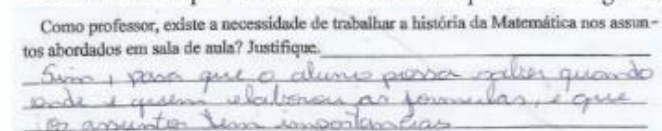 Como professor, existe a necessidade de trabalhar a história da Matemática nos assun-
tos abordados em sala de aula? Justifique.
Sim, para que o aluno possa saber quando
onde e quem elaborou as formulas, e que
os assuntos tem importancias